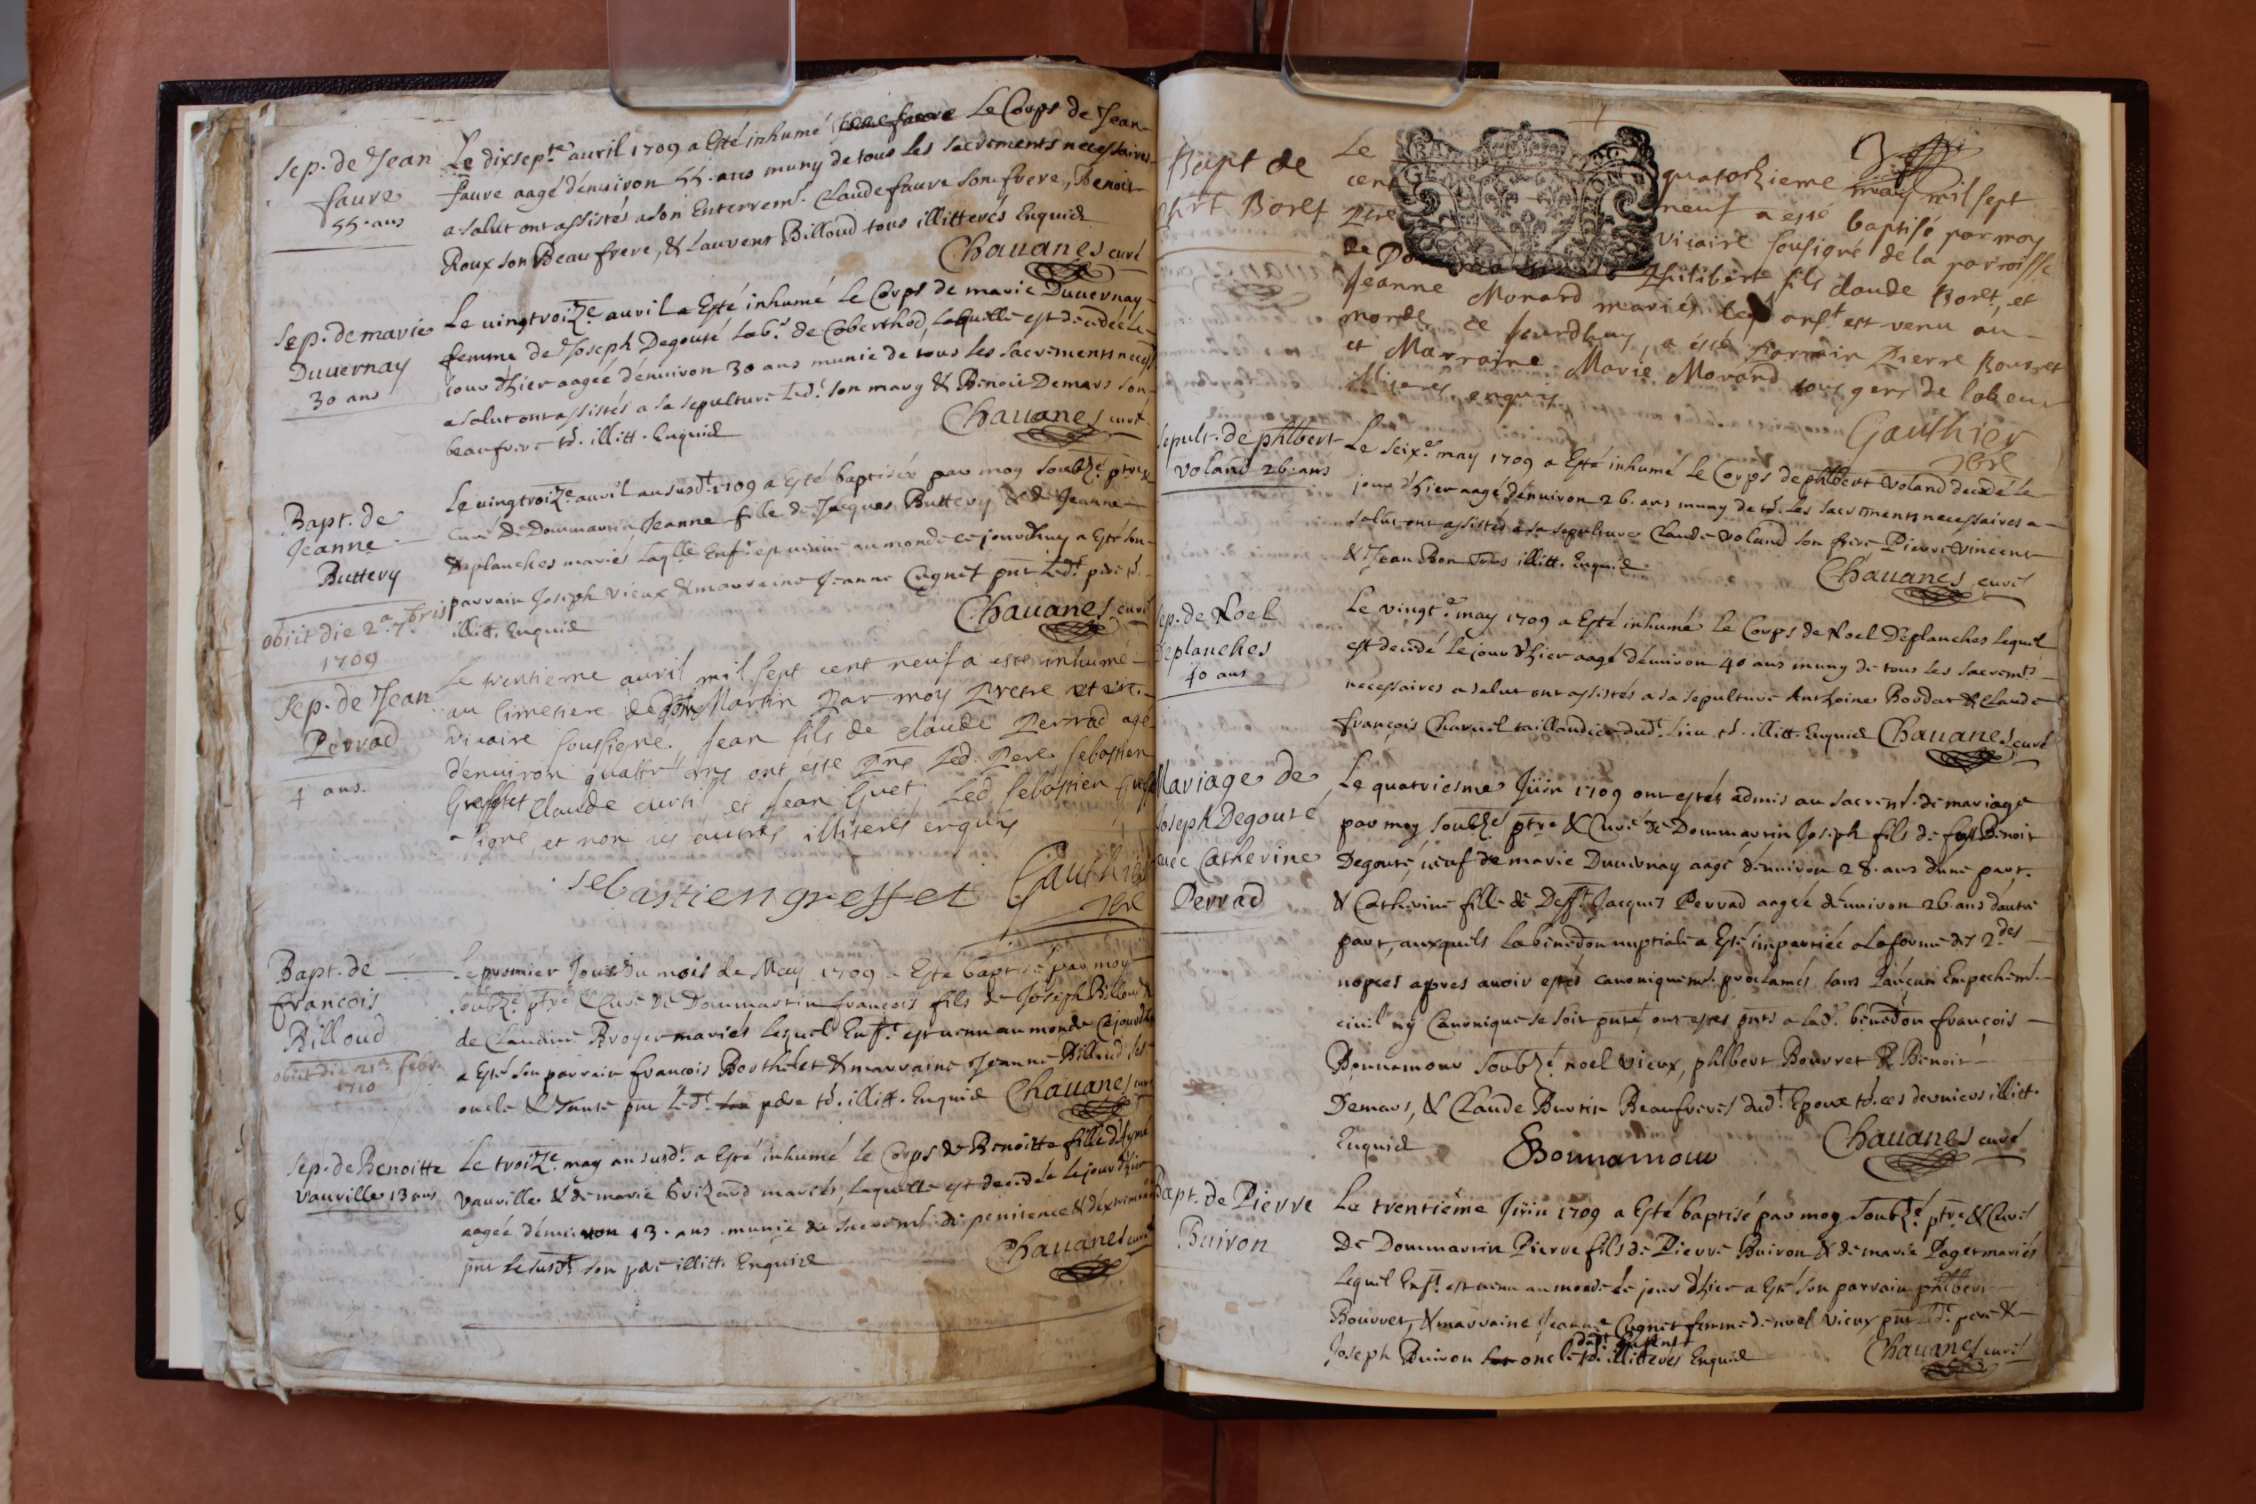 Sep. de Jean
faure
55. ans
Le dixsepte. auril 1709 a Esté inhumé Le Corps de Jean
faure aagé d'enuiron 55. ans muny de tous les sacrements necessaires
a salut ont assistés a son Enterremt. Claude faure son frere, Benoit
Roux son Beaufrere, & Laurens Billoud tous illitterés Enquis
Chauanes curé
Sep. de marie
Duuernay
30 ans
Le uingtroize. auril a Esté inhumé Le Corps de marie Duuernay
femme de Joseph Degouté Labr. de Coberthod, Laquelle est decedée le
jour d'hier aagée d'enuiron 30 ans munie de tous les sacrements necess
a salut ont assistés a sa sepulture Ledt. son mary & Benoit Demars son
beaufrere ts. illitt. Enquis
Chauanes curé
Bapt. de
Jeanne
Buttery
obiit die 2a. 7bris
1709
Le uingtroize. auril an susdt. 1709 a Esté baptisée par moy soubzé. ptre &
Curé de Dommartin Jeanne fille de Jacques Buttery & de Jeanne
Deplanches mariés Laqlle Enft. est uenüe au monde ce jourdhuy a Esté son
parrain Joseph vieux & marraine Jeanne Cugnet pnt Ledt. pere ts.
illitt. Enquis
Chauanes curé
Sep. de Jean
Perrad
4 ans.
Le trentieme auril mil sept cent neuf a esté inhumé
au Cimetiere de Dom Martin par moy Pretre et
vicaire soussigné. Jean fils de claude Perrad agé
d'enuiron quattre ans ont esté pns Led. Pere sebastien
Greffet claude curtil et Jean Guet Led sebastien
signé et non les autres illiterés enquis
sebastien greffet
Gauthier
pbre
Bapt. de
francois
Billoud
obiit die 21a. febr.
1710
Le premier Jour du mois de May 1709 a Esté baptisé par moy
soubzé. ptre & Curé de Dommartin francois fils de Joseph Billoud &
de Claudine Broyer mariés lequel Enft. est uenu au monde ce jourdhuy
a Esté son parrain francois Berthelet & marraine Jeanne Billoud ses
oncle & Tante pnt Ledt. pere ts. illitt. Enquis
Chauanes curé
Sep. de Benoitte
Vauville 13 ans
Le troize. may an susdt. a Esté inhumé le Corps de Benoitte fille d'
Vauville & de marie Grizard mariés, Laquelle est decedée le jour d'hier
aagée d'enuiron 13. ans munie du sacremt. de penitence & d'extremonct
pnt le susdt. son pere illitt. Enquis
Chauanes curé
3
Bapt de
Boret
Le quatorzieme may mil sept
cent neuf a esté baptisé par moy
Ptre vicaire sousigné de la parroisse
de Philibert fils claude Boret, et
Jeanne Morard mariés enft est venu au
monde ce jourdhuy, a esté Parrain Pierre Bourret
et Marraine Marie Morard tous gens de labeur
illiterés enquis
Gauthier
pbre
Sepult. de phlbert
Voland 26. ans
Le seixe. may 1709 a Esté inhumé le Corps de phlbert Voland decedé le
jour d'hier aagé d'enuiron 26. ans muny de ts. les sacrements necessaires a
salut ont assistés a sa sepulture Claude Voland son frere Pierre Vincent
& Jean Bon Tous illitt. Enquis
Chauanes curé
Sep. de Noel
Deplanches
40 ans
Le vingte. may 1709 a Esté inhumé Le Corps de Noel Déplanches lequel
est decedé le jour d'hier aagé d'enuiron 40 ans muny de tous les sacremts
necessaires a salut ont assistés a sa sepulture Anthoine Boudar & Claude
francois Charuel taillandier dudt. Lieu ts. illitt. Enquis Chauanes curé
Mariage de
Joseph Degouté
auec Catherine
Perrad
Le quatriesme Juin 1709 ont estés admis au sacremt. de mariage
par moy soubzé ptre & Curé de Dommartin Joseph fils de feu Benoit
Degouté, ueuf de marie Duuernay aagé d'enuiron 28. ans d'une part.
& Catherine fille de Defft. Jacques Perrad aagée d'enuiron 26. ans d'autre
part, auxquels la benedon nuptiale a Esté impartiée a la forme des 2des
nopces apres auoir estés canoniquemt. proclamés sans qu'aucun Empechemt.
ciuil ny Canonique se soit pnté ont estés pnts a lade. benedon francois
Bonnamour soubzé. noel vieux, phlbert Bourret & Benoit
Demars, & Claude Burtin Beaufreres dudt. Epoux ts. ces derniers illitt.
Enquis
Bonnamour
Chauanes curé
Bapt. de Pierre
Buiron
Le trentiéme Juin 1709 a Esté baptisé par moy soubzé. ptre & Curé
De Dommartin Pierre fils de Pierre Buiron & de marie Paget mariés
lequel Enft. est uenu au monde le jour d'hier a Esté son parrain phlbert
Bourret, & marraine Jeanne Cugnet femme de noel vieux pnt ledt. pere &
Joseph Buiron oncle ts. illitterés Enquis
Chauanes curé